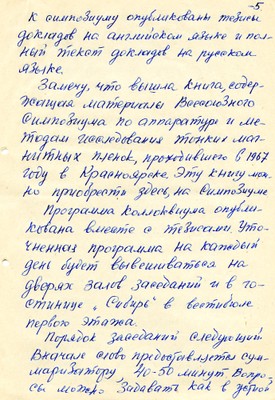 -5
К симпозиуму опубликованы тезисы
докладов на английском языке и пол-
ный текст докладов на русском
языке.
Замечу, что вышла книга, содер-
жащая материалы Всесоюзного
Симпозиума по аппаратуре и ме-
тодам исследования тонких маг-
нитных пленок, проходившего в 1967
году в Красноярске. Эту книгу мож-
но приобрести здесь, на Симпозиуме
Программа Коллоквиума опубли-
кована вместе с тезисами. Уто-
ченная программа на каждый
день будет вывешиваться на
дверях залов заседаний и в го-
стинице „Сибирь" в вестибюле
первого этажа.
Порядок заседаний следующий.
Вначале слово предоставляется сум-
маризатору 40-50 минут. Вопро-
сы можно задавать как в устной